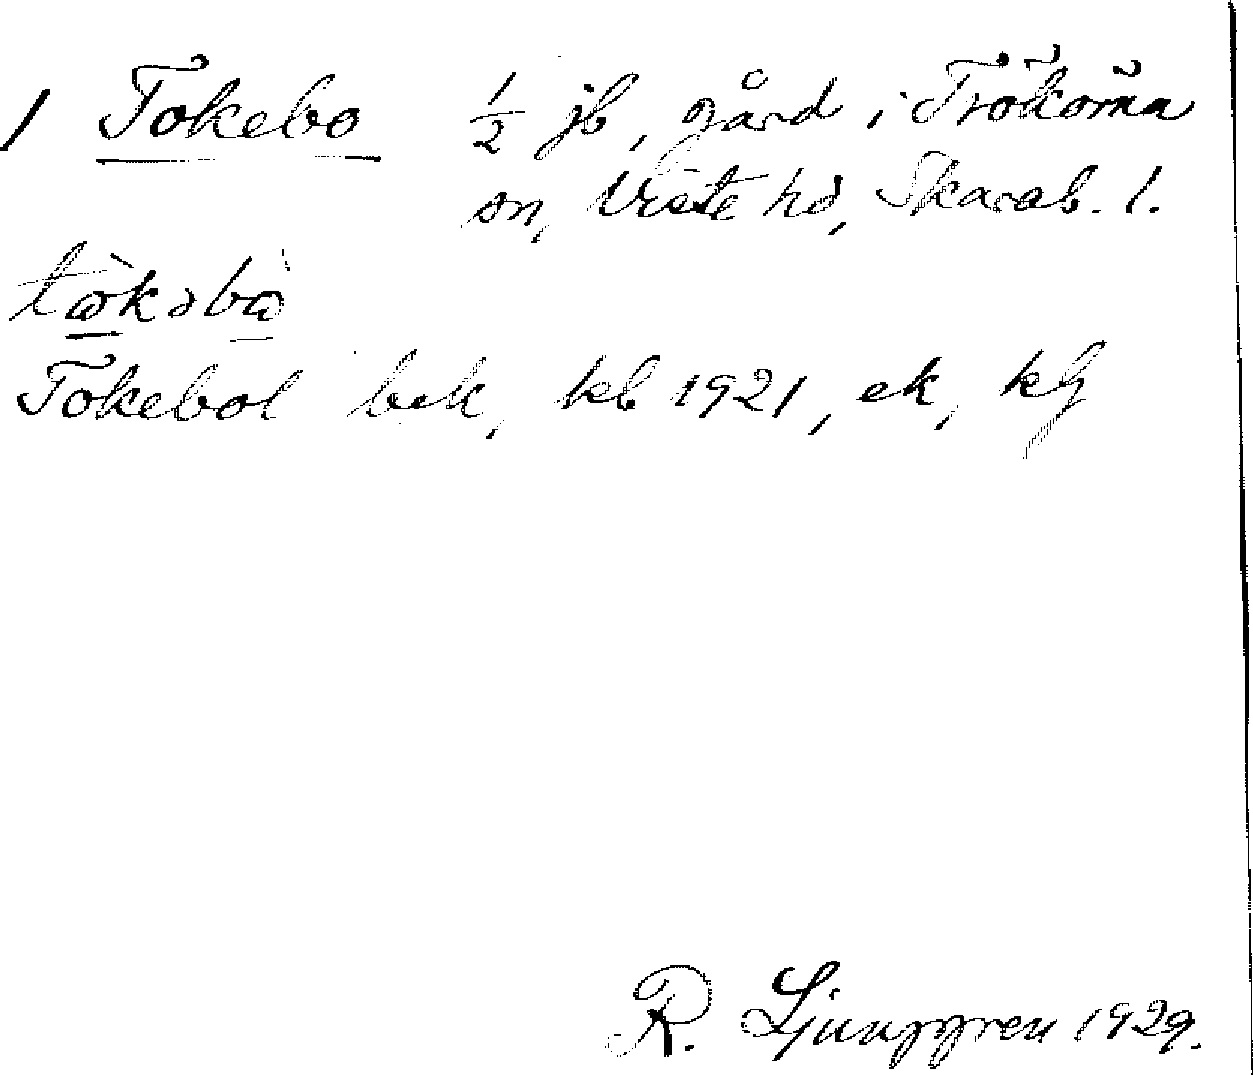 1 Tokebo ½ jb, gård i Trökörna
sn, Viste hd, Skarab. l.
tɷ̀kəbɷ̀
Tokebol bek, kb 1921, ek, kG
R. Ljunggren 1929.